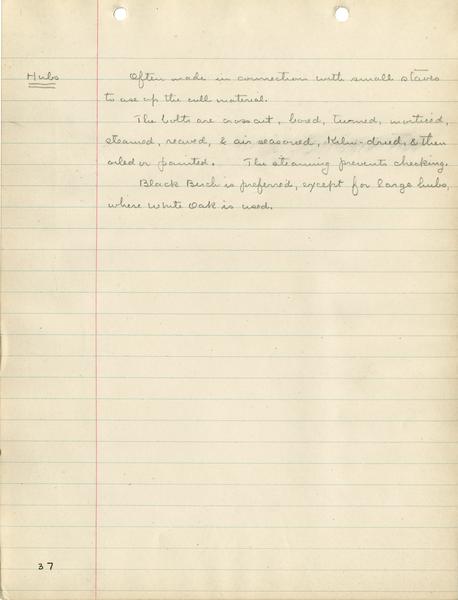 Hubs
Often made in connection with small staves
to use up the cull material.
The bolts are cross cut, bored, turned, morticed,
steamed, & air seasoned, Kiln-dried, & then
oiled or painted. The steaming prevents checking.
Black Birch is preferred, except for large hubs,
where White Oak is used.
37